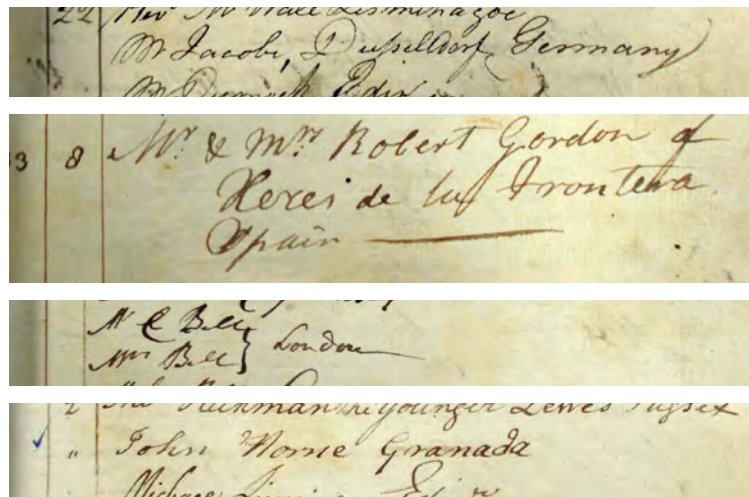 22 Rev Mr Wall Lesmahagoe
Mr Jacobi, Dusseldorf, Germany
Edin
3 8 Mr. & Mrs. Robert Gordon of
Xeres de la Frontera
Spain
Mr C Bell
Mrs Bell } London
2 the younger Lewes Sussex
" John Horne Granada
Edinr